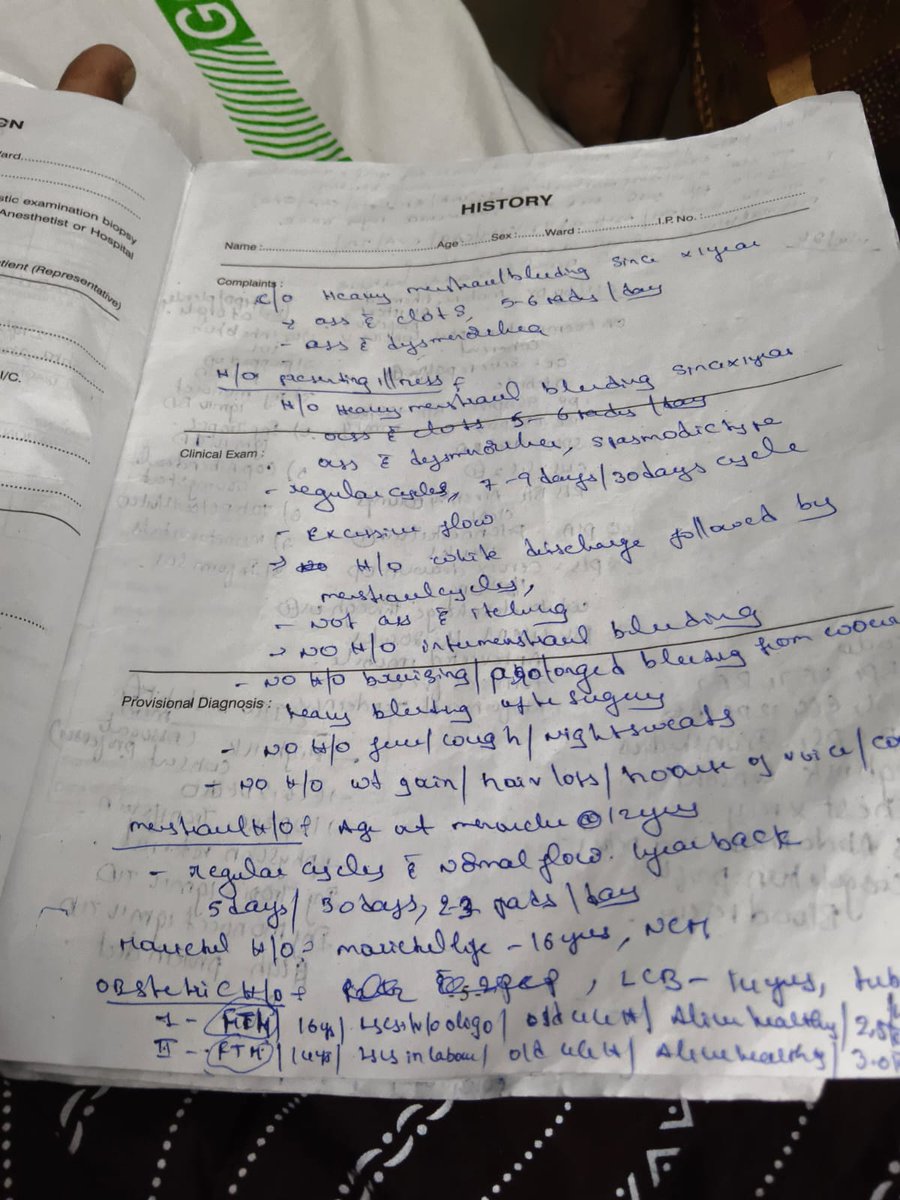 G
ON
ard..................
stic examination biopsy
Anesthetist or Hospital
tient (Representative)
I/C.
HISTORY
Name :..............................Age :........Sex :.......Ward :......................I.P. No. :..................
Complaints :
c/o Heavy menstrual bleeding since x 1 year
→ ass c̄ clots, 5-6 pads / day
- ass c̄ dysmenorrhea
H/o presenting illness :
H/o Heavy menstrual bleeding since x 1 year
ass c̄ clots 5-6 pads / day
Clinical Exam :
ass c̄ dysmenorrhea, spasmodic type
- regular cycles, 7-9 days / 30 days cycle
- Excessive flow
→ H/o white discharge followed by
menstrual cycles,
- Not ass c̄ itching
→ No H/o intermenstrual bleeding
- No H/o bruising / prolonged bleeding from
Provisional Diagnosis :
heavy bleeding after surgery
- No H/o fever / cough / nightsweats
- No H/o wt gain / hair loss / of voice /
menstrual H/o : Age at menarche @ 12 yrs
- regular cycles c̄ normal flow 1 year back
5 days / 30 days, 2-3 pads / day
Marital H/o : married life - 16 yrs, NCM
Obstetric H/o : , LCB - 14 yrs,
I - FTM / 16 yrs / LSCS i/v/o oligo / / Alive healthy / 2.5
II - FTM / 14 yrs / LSCS in labour / / Alive healthy / 3.0